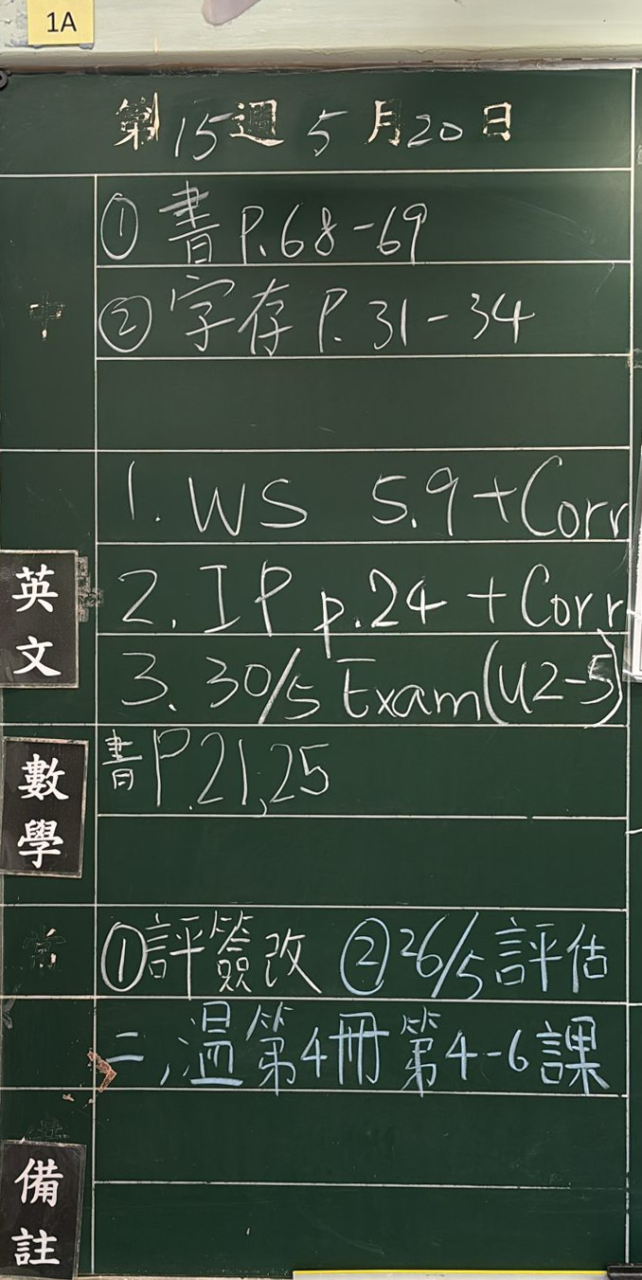 1A
第15週5月20日
中
① 書 P.68-69
② 字存 P.31-34
英文
1. WS 5.9 + Corr
2. IP p.24 + Corr
3. 30/5 Exam (U2-5)
數學
書 P.21,25
常
①評簽改 ②26/5評估
二,温第4冊第4-6課
備註